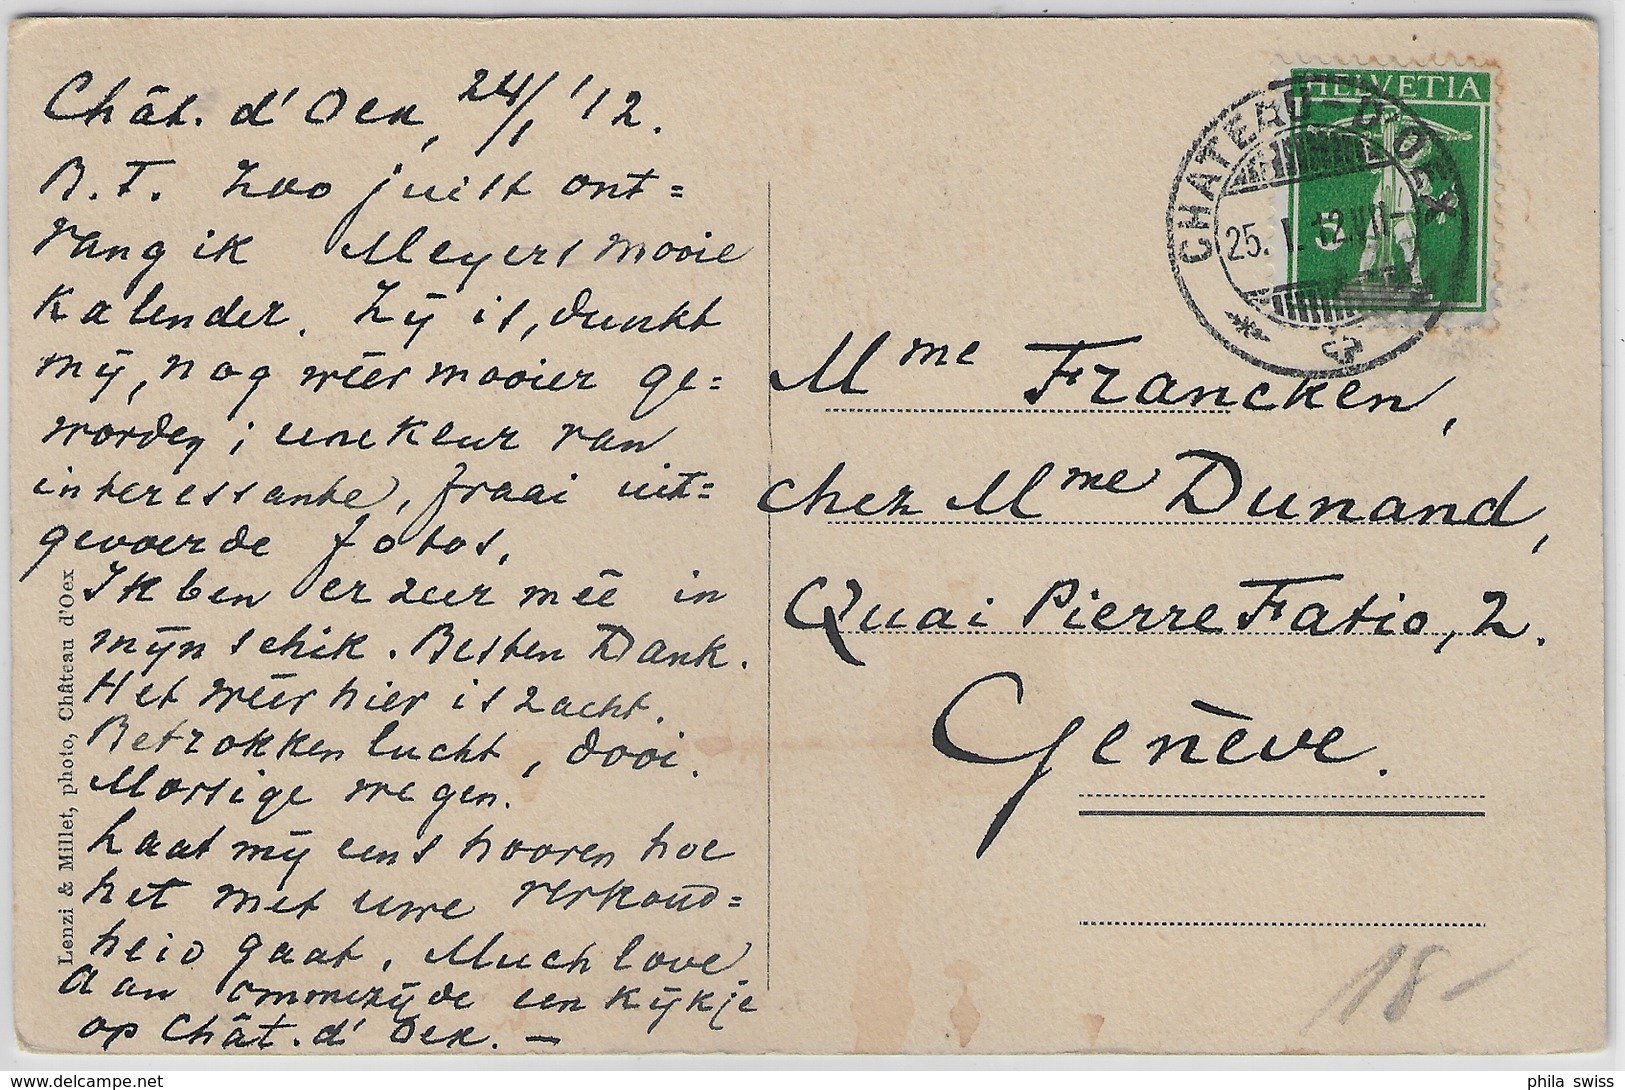 Chât. d'Oex, 24/1 '12.
B. T. Zoo juist ont=
vang ik Meyers mooie
Kalender. Zij is, dunkt
mij, nog wéér mooier ge=
worden; eene keur van
interessante, fraai uit=
gevoerde fotos.
Ik ben er zeer mêe in
mijn schik. Besten Dank.
Het wéér hier is zacht.
Betrokken lucht, dooi.
Morsige wegen.
Laat mij eens hooren hoe
het met uwe verkoud=
heid gaat. Much love
Aan ommezijde een kijkje
op Chât. d' Oex. —
Lenzi & Millet, photo, Château d'Oex
HELVETIA
5
CHATEAU-D'OEX
25. I. 12. VII-
Mme Francken,
chez Mme Dunand,
Quai Pierre Fatio, 2.
Genève.
18-
phila swiss